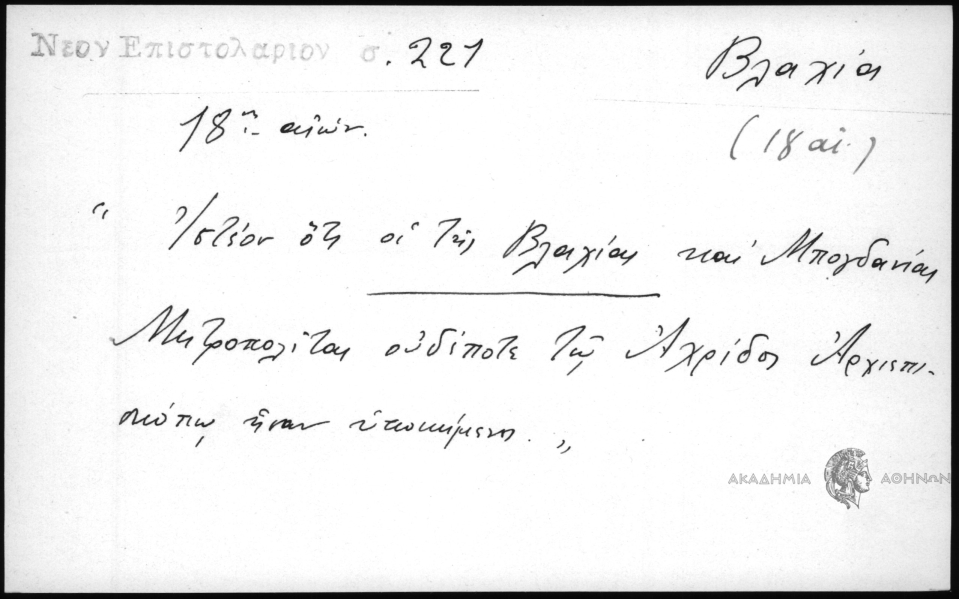 Νεον Επιστολαριον σ. 221
Βλαχία
18ος αἰών.
(18 αἰ.)
“ Ἰστέον ὅτι οἱ τῆς Βλαχίας καὶ Μπογδανίας
Μητροπολῖται οὐδέποτε τῷ Ἀχρίδος Ἀρχιεπι-
σκόπῳ ἦσαν ὑποκείμενοι. „
ΑΚΑΔΗΜΙΑ ΑΘΗΝΩΝ